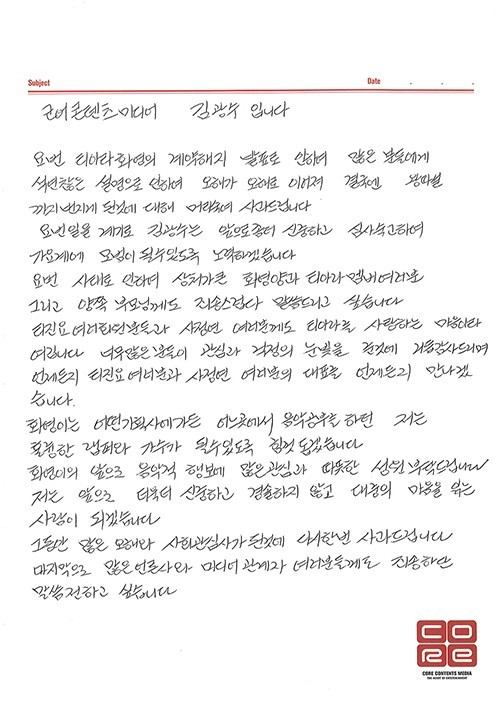 Subject Date . . .
코어콘텐츠미디어 김광수 입니다
요번 티아라 화영의 계약해지 발표로 인하여 많은 분들에게
석연찮은 설명으로 인하여 오해가 오해로 이어져 결국엔 왕따설
까지 번지게 된것에 대해 머리숙여 사과드립니다
요번일을 계기로 김광수는 앞으로 좀더 신중하고 심사숙고하여
가요계에 모범이 될수있도록 노력하겠습니다
요번 사태로 인하여 상처가 큰 화영양과 티아라 멤버 여러분
그리고 양쪽 부모님께도 죄송스럽다 말씀드리고 싶습니다
티진요 여러회원분들과 사정연 여러분께도 티아라를 사랑하는 마음이라
여깁니다 너무 많은분들이 관심과 걱정의 눈빛을 준것에 거듭감사드리며
언제든지 티진요 여러분과 사정연 여러분의 대표를 언제든지 만나겠
습니다.
화영이는 어떤기획사에 가든 어느곳에서 음악공부를 하던 저는
훌륭한 랩퍼와 가수가 될수있도록 힘껏 돕겠습니다
화영이의 앞으로 음악적 행보에 많은관심과 따뜻한 성원 부탁드립니다
저는 앞으로 더욱더 신중하고 경솔하지 않고 대중의 마음을 읽는
사람이 되겠습니다
그동안 많은 오해와 사회관심사가 된것에 다시한번 사과드립니다
마지막으로 많은 언론사와 미디어 관계자 여러분들께도 죄송하단
말씀 전하고 싶습니다
CORE
CORE CONTENTS MEDIA
THE HEART OF ENTERTAINMENT